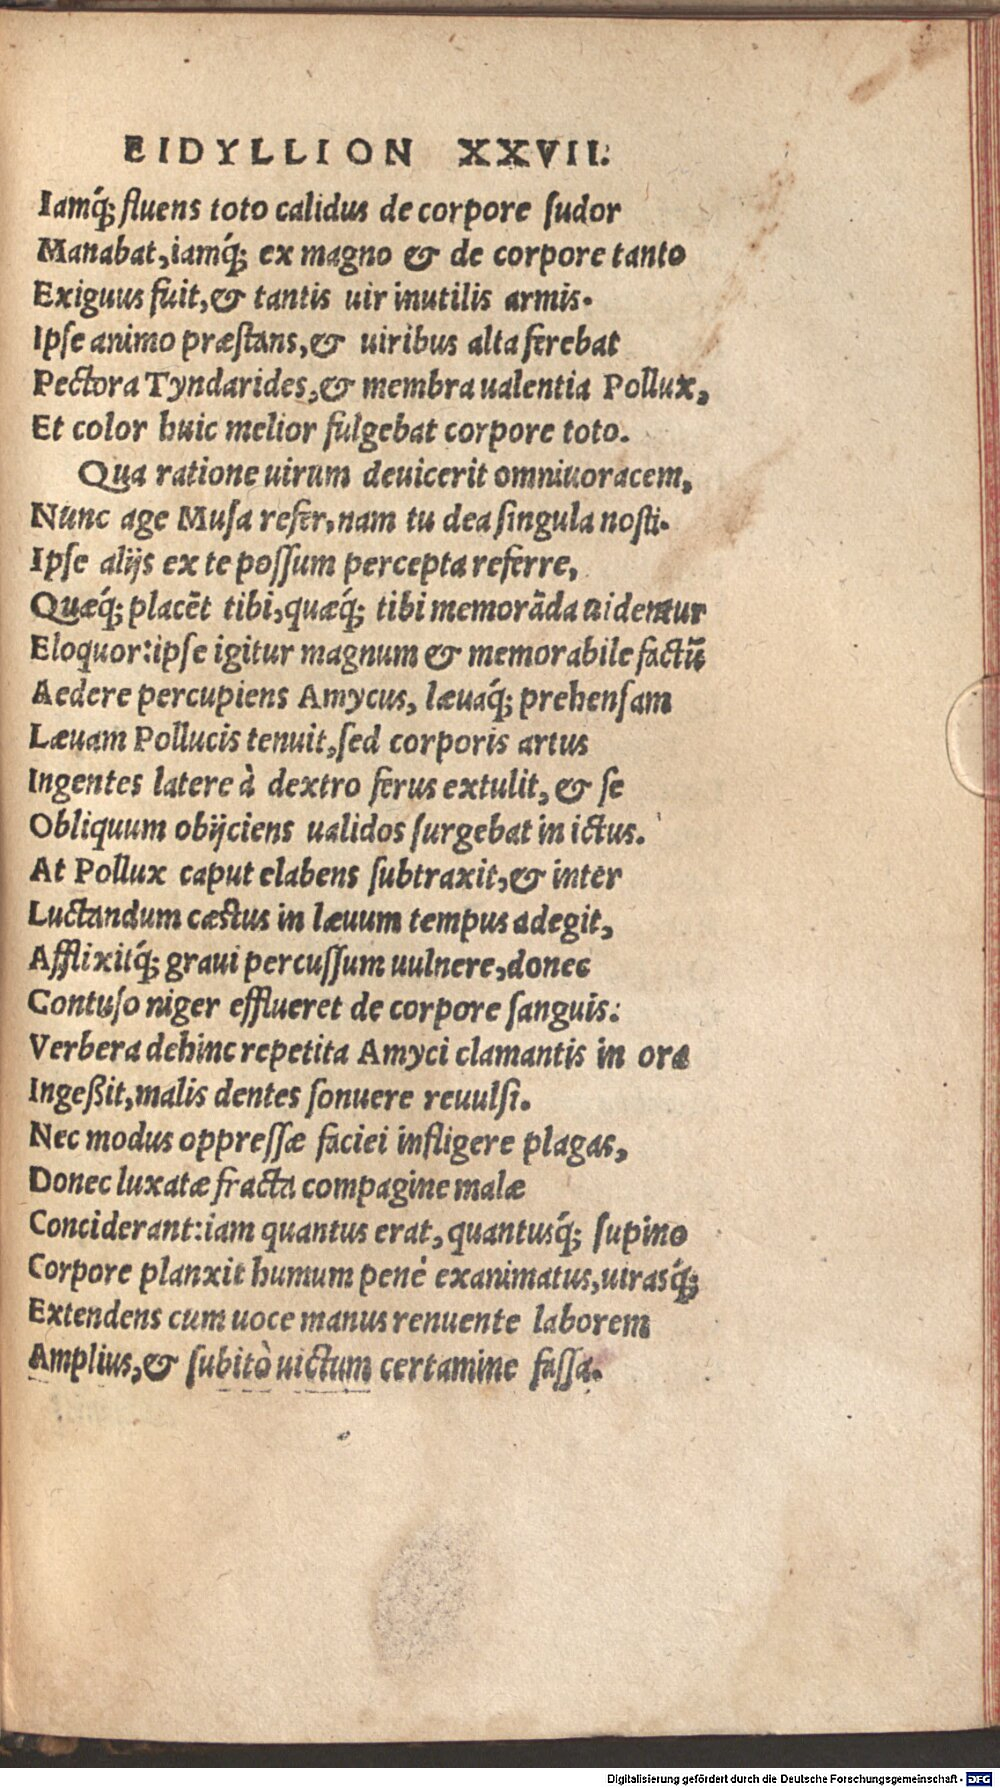 EIDYLLION XXVII.
Iamq́; fluens toto calidus de corpore sudor
Manabat, iamq́; ex magno & de corpore tanto
Exiguus fuit, & tantis uir inutilis armis.
Ipse animo præstans, & uiribus alta ferebat
Pectora Tyndarides, & membra ualentia Pollux,
Et color huic melior fulgebat corpore toto.
Qua ratione uirum deuicerit omniuoracem,
Nunc age Musa refer, nam tu dea singula nosti.
Ipse alijs ex te possum percepta referre,
Quæq́; placēt tibi, quæq́; tibi memorāda uidentur
Eloquor: ipse igitur magnum & memorabile factū
Aedere percupiens Amycus, læuaq́; prehensam
Læuam Pollucis tenuit, sed corporis artus
Ingentes latere à dextro ferus extulit, & se
Obliquum obijciens ualidos surgebat in ictus.
At Pollux caput elabens subtraxit, & inter
Luctandum cæstus in læuum tempus adegit,
Afflixitq́; graui percussum uulnere, donec
Contuso niger efflueret de corpore sanguis:
Verbera dehinc repetita Amyci clamantis in ora
Ingeßit, malis dentes sonuere reuulsi.
Nec modus oppressæ faciei infligere plagas,
Donec luxatæ fracta compagine malæ
Conciderant: iam quantus erat, quantusq́; supino
Corpore planxit humum penè exanimatus, utrasq́;
Extendens cum uoce manus renuente laborem
Amplius, & subitò uictum certamine fassa.
Digitalisierung gefördert durch die Deutsche Forschungsgemeinschaft - DFG